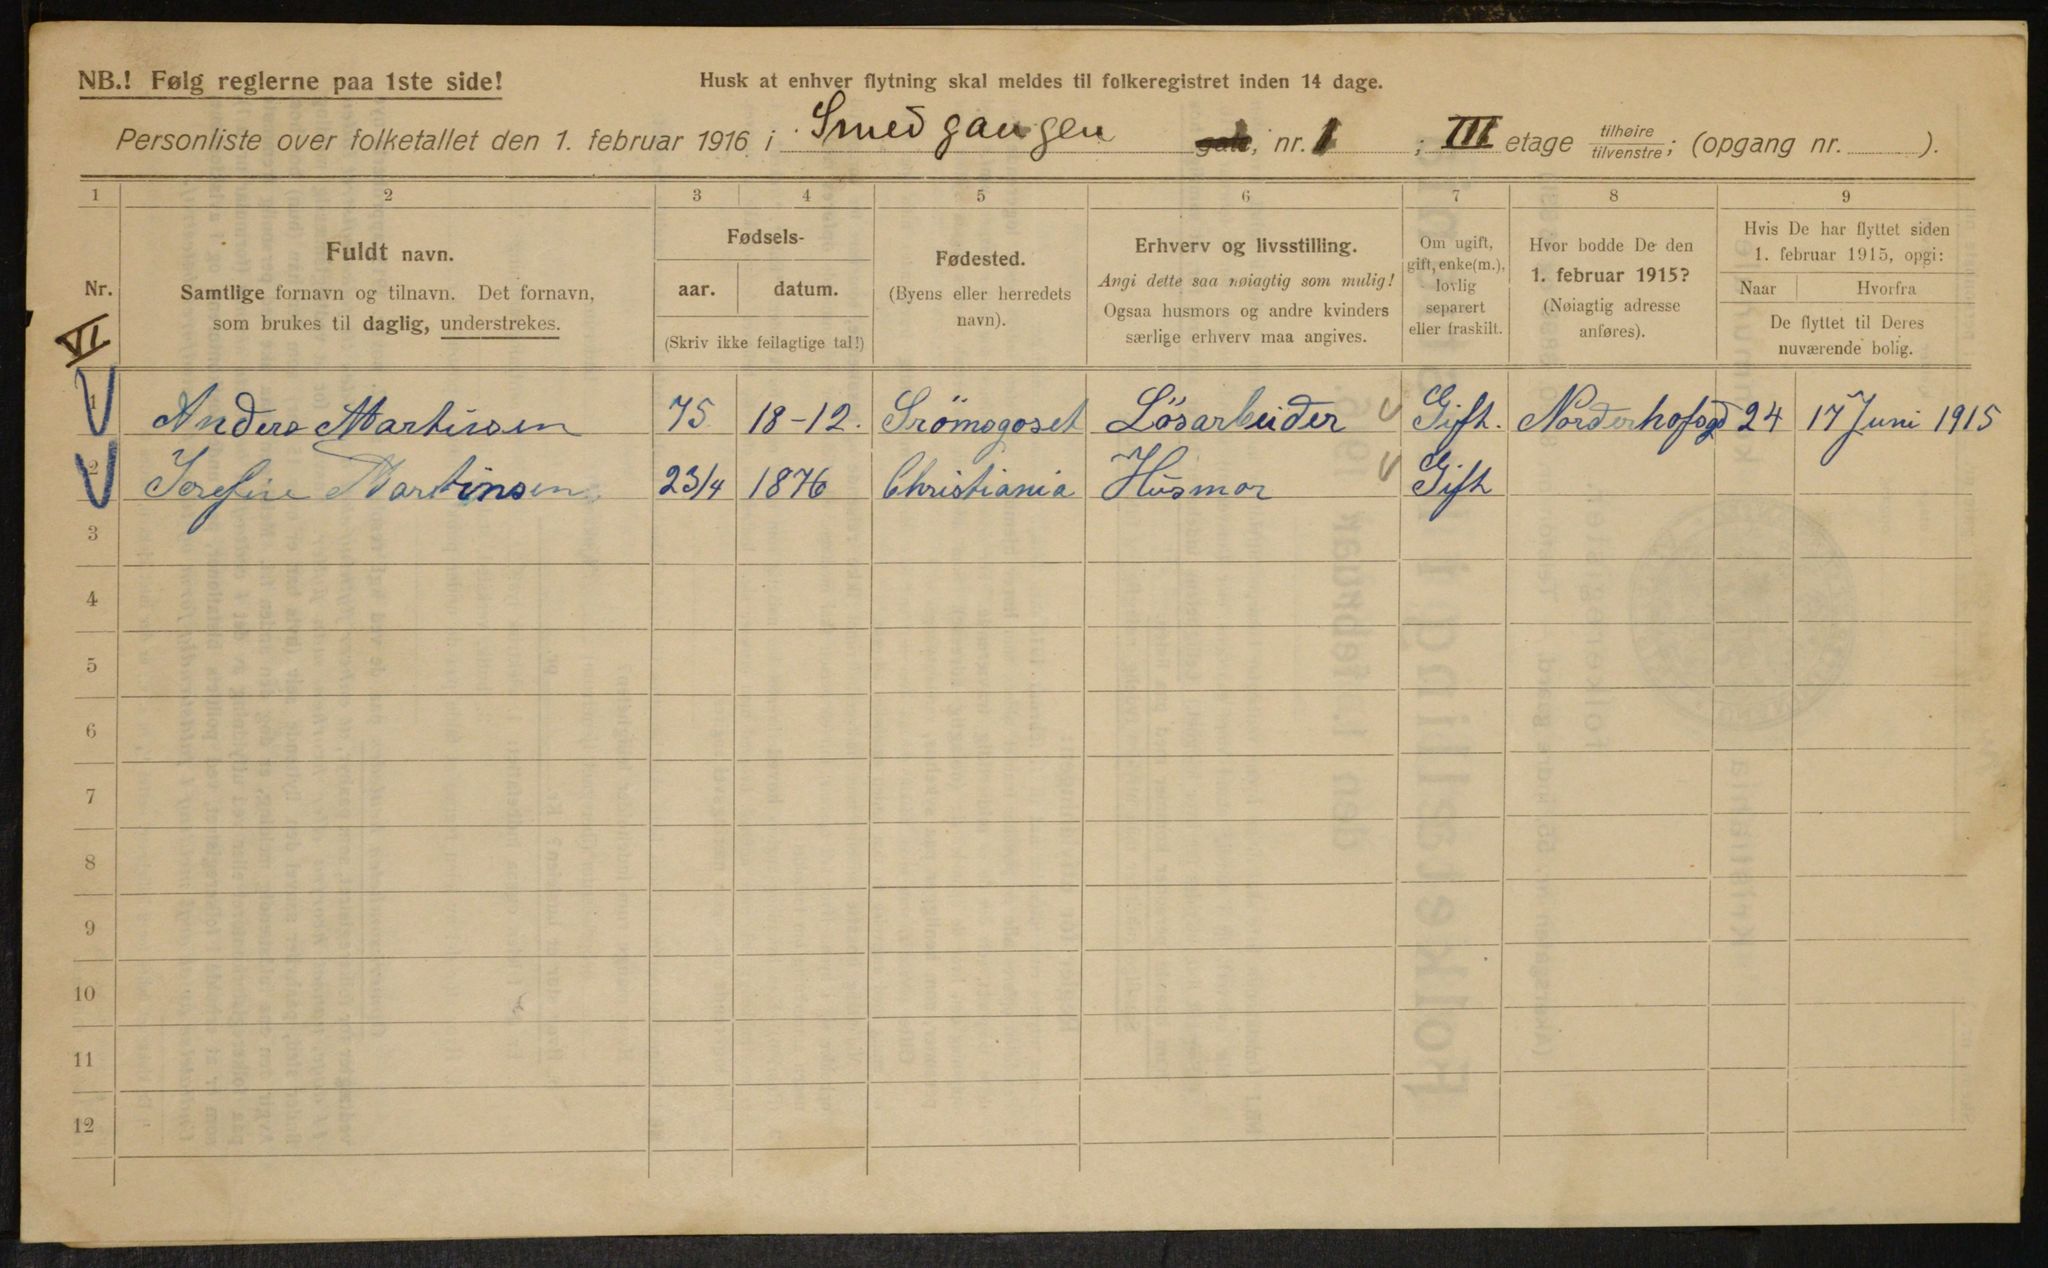 NB.! Følg reglerne paa 1ste side!
Husk at enhver flytning skal meldes til folkeregistret inden 14 dage.
Personliste over folketallet den 1. februar 1916 i Smedgangen gate, nr. 1; III etage tilhøire/tilvenstre; (opgang nr. ).
1 2 3 4 5 6 7 8 9
Nr.
VI
Fuldt navn.
Samtlige fornavn og tilnavn. Det fornavn,
som brukes til daglig, understrekes.
Fødsels-
aar. datum.
(Skriv ikke feilagtige tal!)
Fødested.
(Byens eller herredets
navn).
Erhverv og livsstilling.
Angi dette saa nøiagtig som mulig!
Ogsaa husmors og andre kvinders
særlige erhverv maa angives.
Om ugift,
gift, enke(m.),
lovlig
separert
eller fraskilt.
Hvor bodde De den
1. februar 1915?
(Nøiagtig adresse
anføres).
Hvis De har flyttet siden
1. februar 1915, opgi:
Naar Hvorfra
De flyttet til Deres
nuværende bolig.
1 Anders Martinsen 75 18-12. Srömsgoset Lösarbeider Gift. Norderhofsgd 24 17 Juni 1915
2 Josefine Martinsen 23/4 1876 Christiania Husmor Gift
3
4
5
6
7
8
9
10
11
12